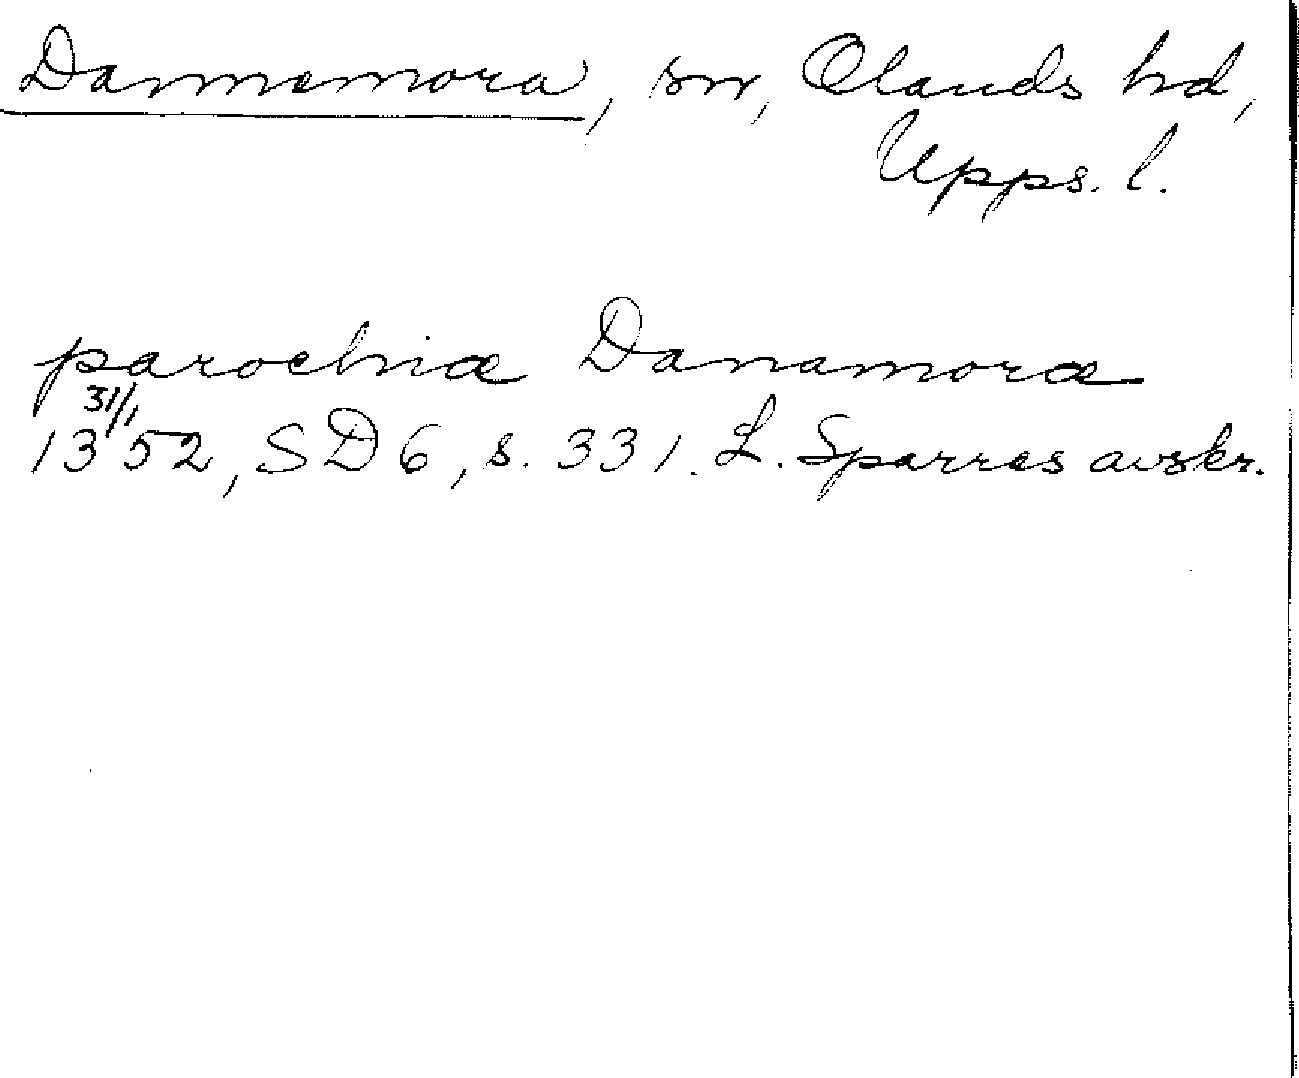 Dannemora, sn, Olands hd,
Upps. l.
parochia Danamora
31/1
1352, SD 6, s. 331. L. Sparres avskr.